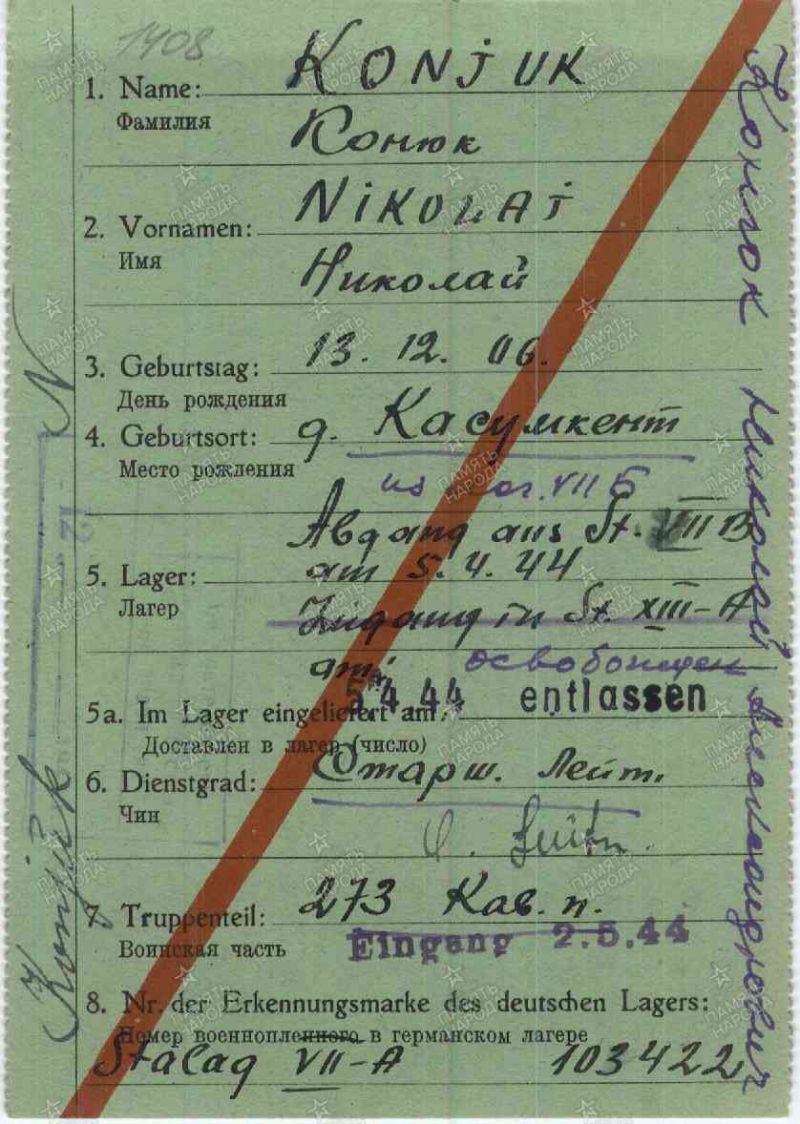 1408
1. Name: KONJUK
Фамилия Конюк
2. Vornamen: NIKOLAI
Имя Николай
3. Geburtstag: 13. 12. 06.
День рождения
4. Geburtsort: g. Касумкент
Место рождения
из VII Б
Abgang aus St. VII B
5. Lager: am 5. 4. 44
Лагерь
Zugang in St. XIII-A
am:
освобожден
5 4 44 entlassen
5a. Im Lager eingeliefert am:
Доставлен в лагерь (число)
6. Dienstgrad: Старш. Лейт.
Чин
7. Truppenteil: 273 Кав. п.
Воинская часть Eingang 2.5.44
8. Nr. der Erkennungsmarke des deutschen Lagers:
Номер военнопленного в германском лагере
Stalag VII-A 103422
Конюк Николай Александрович
Konjuk
N
ПАМЯТЬ НАРОДА